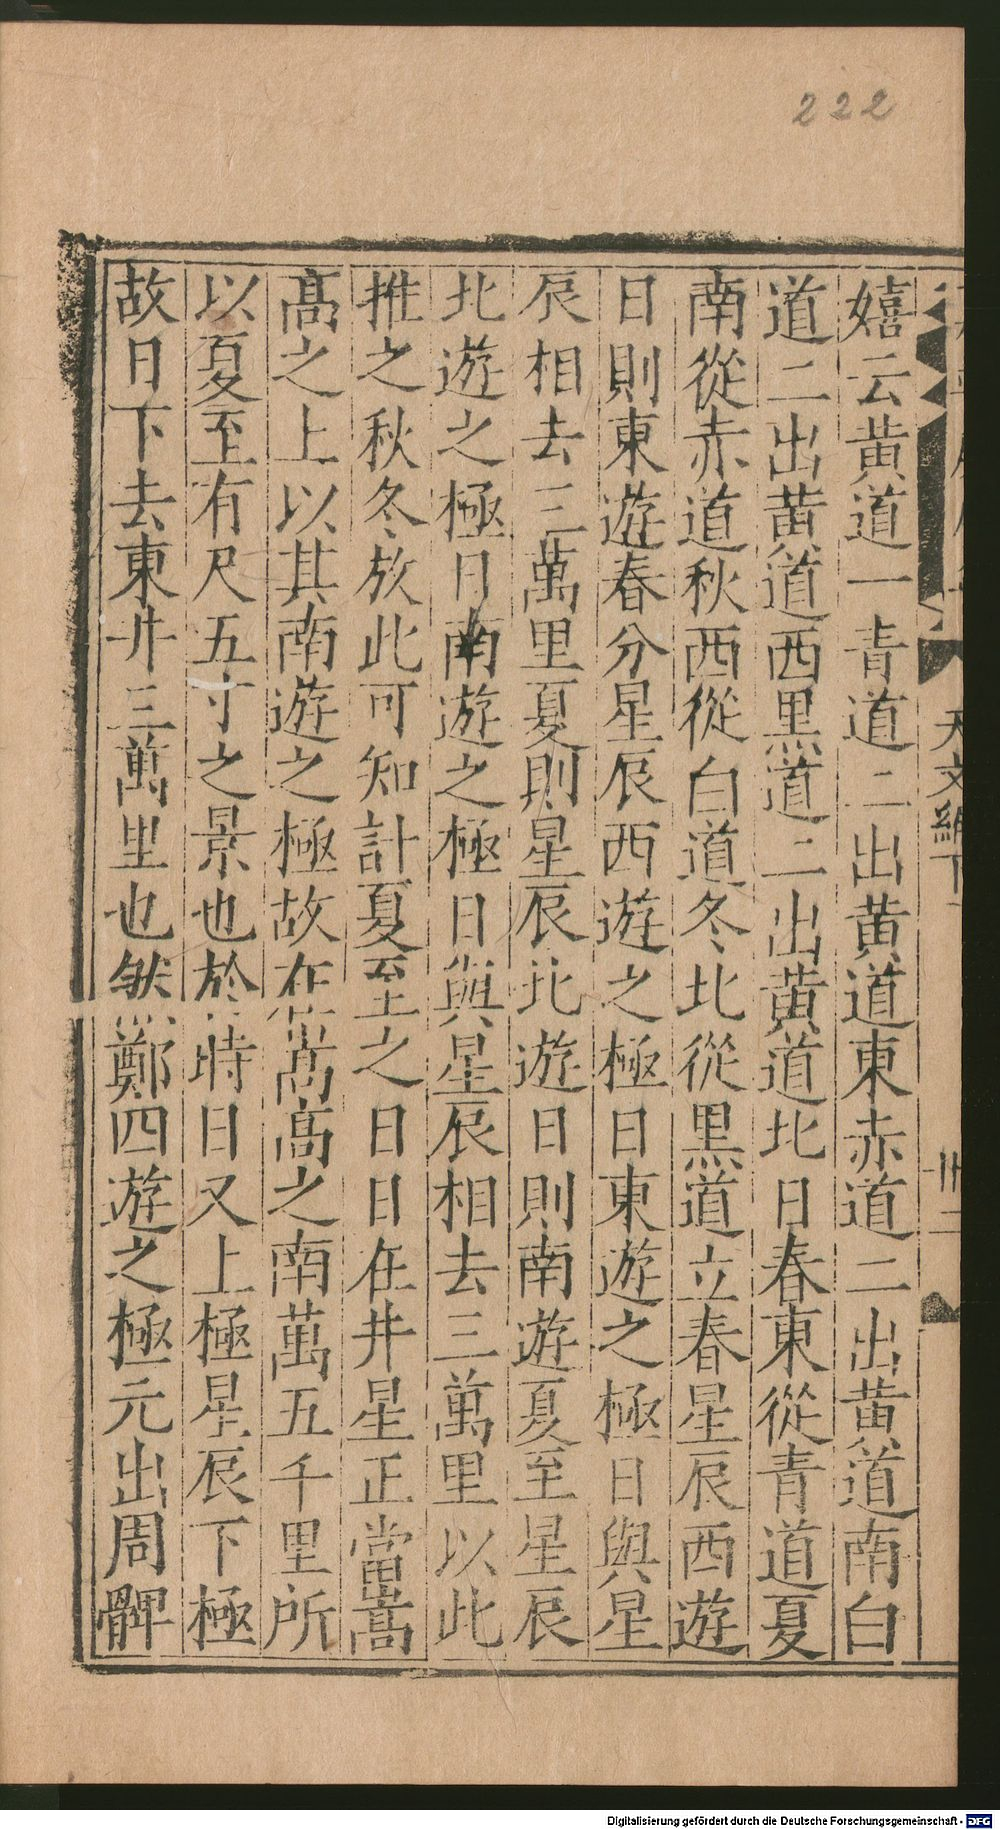 222
天文編下
卅二
嬉云黄道一青道二出黄道東赤道二出黄道南白
道二出黄道西黑道二出黄道北日春東從青道夏
南從赤道秋西從白道冬北從黑道立春星辰西遊
日則東遊春分星辰西遊之極日東遊之極日與星
辰相去三萬里夏則星辰北遊日則南遊夏至星辰
北遊之極日南遊之極日與星辰相去三萬里以此
推之秋冬放此可知計夏至之日日在井星正當嵩
髙之上以其南遊之極故在嵩髙之南萬五千里所
以夏至有尺五寸之景也於時日又上極星辰下極
故日下去東井三萬里也然鄭四遊之極元出周髀
Digitalisierung gefördert durch die Deutsche Forschungsgemeinschaft - DFG